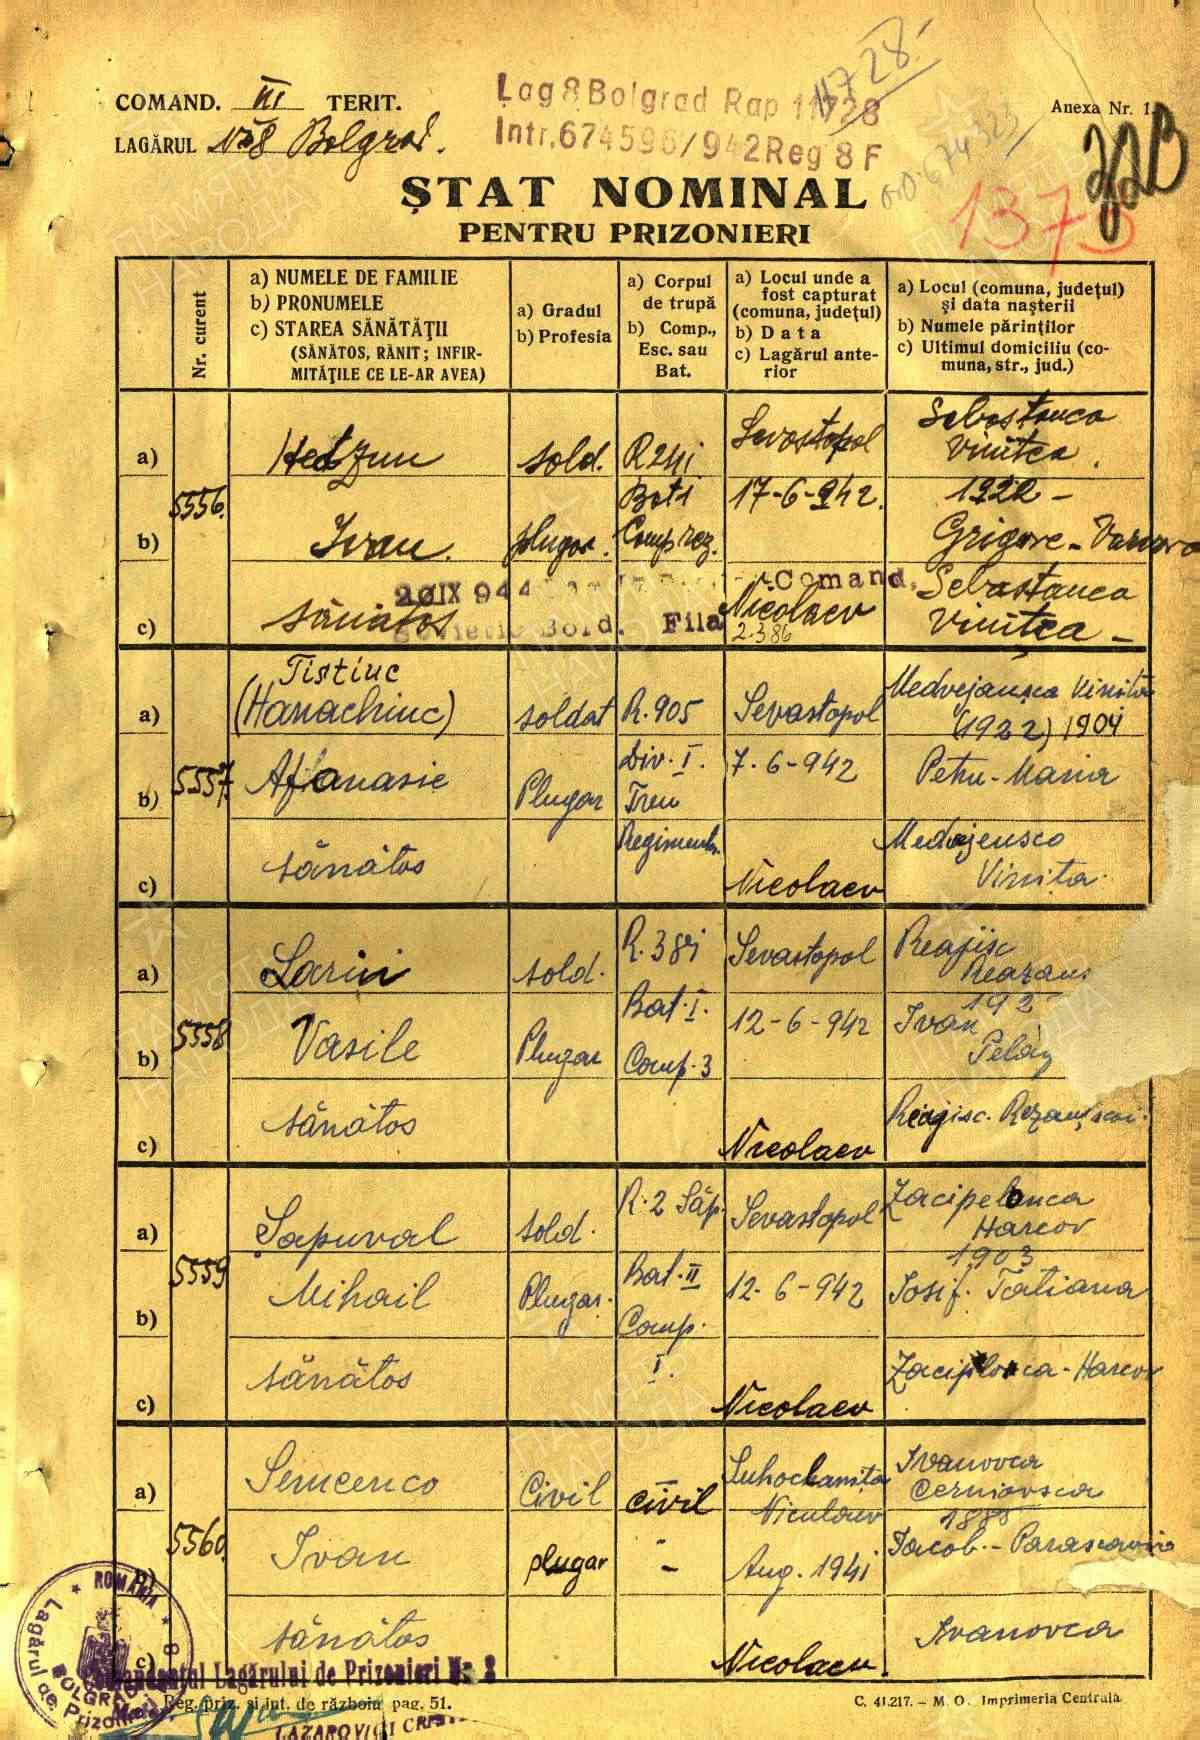 COMAND. III TERIT.
LAGĂRUL No 8 Bolgrad.
Lag 8 Bolgrad Rap 11728
Intr. 674596/942 Reg 8 F
11728.
Anexa Nr. 1.
22B
1375
ȘTAT NOMINAL
PENTRU PRIZONIERI
Nr. curent
a) NUMELE DE FAMILIE
b) PRONUMELE
c) STAREA SĂNĂTĂȚII
(SĂNĂTOS, RĂNIT; INFIR-
MITĂȚILE CE LE-AR AVEA)
a) Gradul
b) Profesia
a) Corpul
de trupă
b) Comp.,
Esc. sau
Bat.
a) Locul unde a
fost capturat
(comuna, județul)
b) Data
c) Lagărul ante-
rior
a) Locul (comuna, județul)
și data nașterii
b) Numele părinților
c) Ultimul domiciliu (co-
muna, str., jud.)
5556.
a) sold. Sevastopol Sebastanca
Vinitca.
b) Ivan. plugar. Bat 1 Comp rez. 17-6-942. 1922 -
Grigore - Varvara
20 IX 944 Comand.
Sovietic Bord. Fila
c) sănătos Nicolaev Sebastanca
2.386 Vinitca -
5557.
Tistiuc
a) (Hanachiuc) soldat R. 905 Sevastopol Medvejansca Vinita
(1922) 1904
b) Afanasie Plugar Div. I. Tren Regiment. 7-6-942 Petru - Maria
c) sănătos Nicolaev Medvejensco
Vinița.
5558
a) Larin sold. Sevastopol Reajisc
Reazans
192
b) Vasile Plugar Bat. I. Comp. 3 12-6-942 Ivan
Pelag
c) sănătos Nicolaev
5559
a) Șapuval sold. R. 2 Săp. Sevastopol Zacipelonca
Harcov
1903
b) Mihail Plugar. Bat. II Comp. I. 12-6-942 Iosif. Tatiana
c) sănătos Nicolaev Zaciplovca - Harcov
5560.
a) Semcenco Civil civil Niculaev Ivanovca
Cerniovsca
1885
b) Ivan plugar - Aug. 1941 Iacob. - Parascovia
c) sănătos Nicolaev. Ivanovca
ROMANIA
Lagărul de Prizonieri 8
BOLGRAD
Comandantul Lagărului de Prizonieri Nr. 8
Reg. priz. și int. de războiu pag. 51.
C. 41.217. - M. O. Imprimeria Centrală
ПАМЯТЬ
НАРОДА